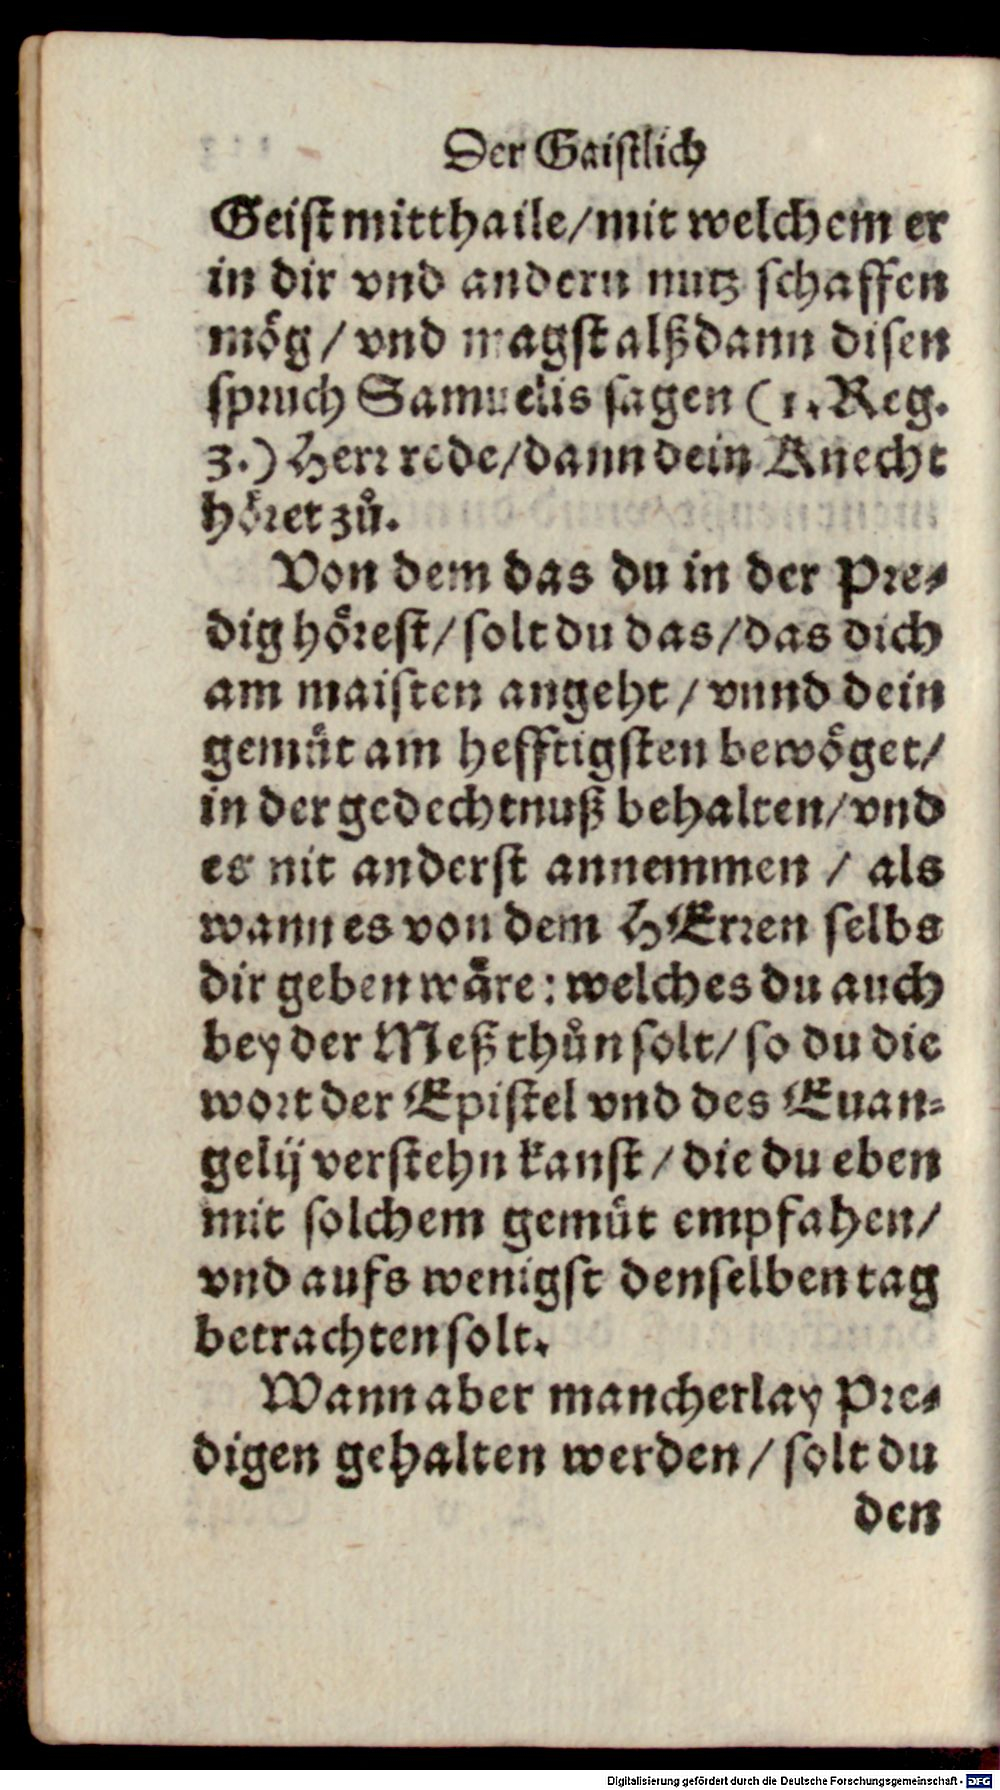 Der Gaistlich
Geist mitthaile/ mit welchem er
in dir vnd andern nutz schaffen
mög/ vnd magst alßdann disen
spruch Samuelis sagen (1. Reg.
3.) Herr rede/ dann dein Knecht
höret zů.
Von dem das du in der Pre-
dig hörest/ solt du das/ das dich
am maisten angeht/ vnnd dein
gemüt am hefftigsten bewöget/
in der gedechtnuß behalten/ vnd
es nit anderst annemmen/ als
wann es von dem HErren selbs
dir geben wäre: welches du auch
bey der Meß thůn solt/ so du die
wort der Epistel vnd des Euan-
gelij verstehn kanst/ die du eben
mit solchem gemüt empfahen/
vnd aufs wenigst denselben tag
betrachten solt.
Wann aber mancherlay Pre-
digen gehalten werden/ solt du
den
Digitalisierung gefördert durch die Deutsche Forschungsgemeinschaft - DFG